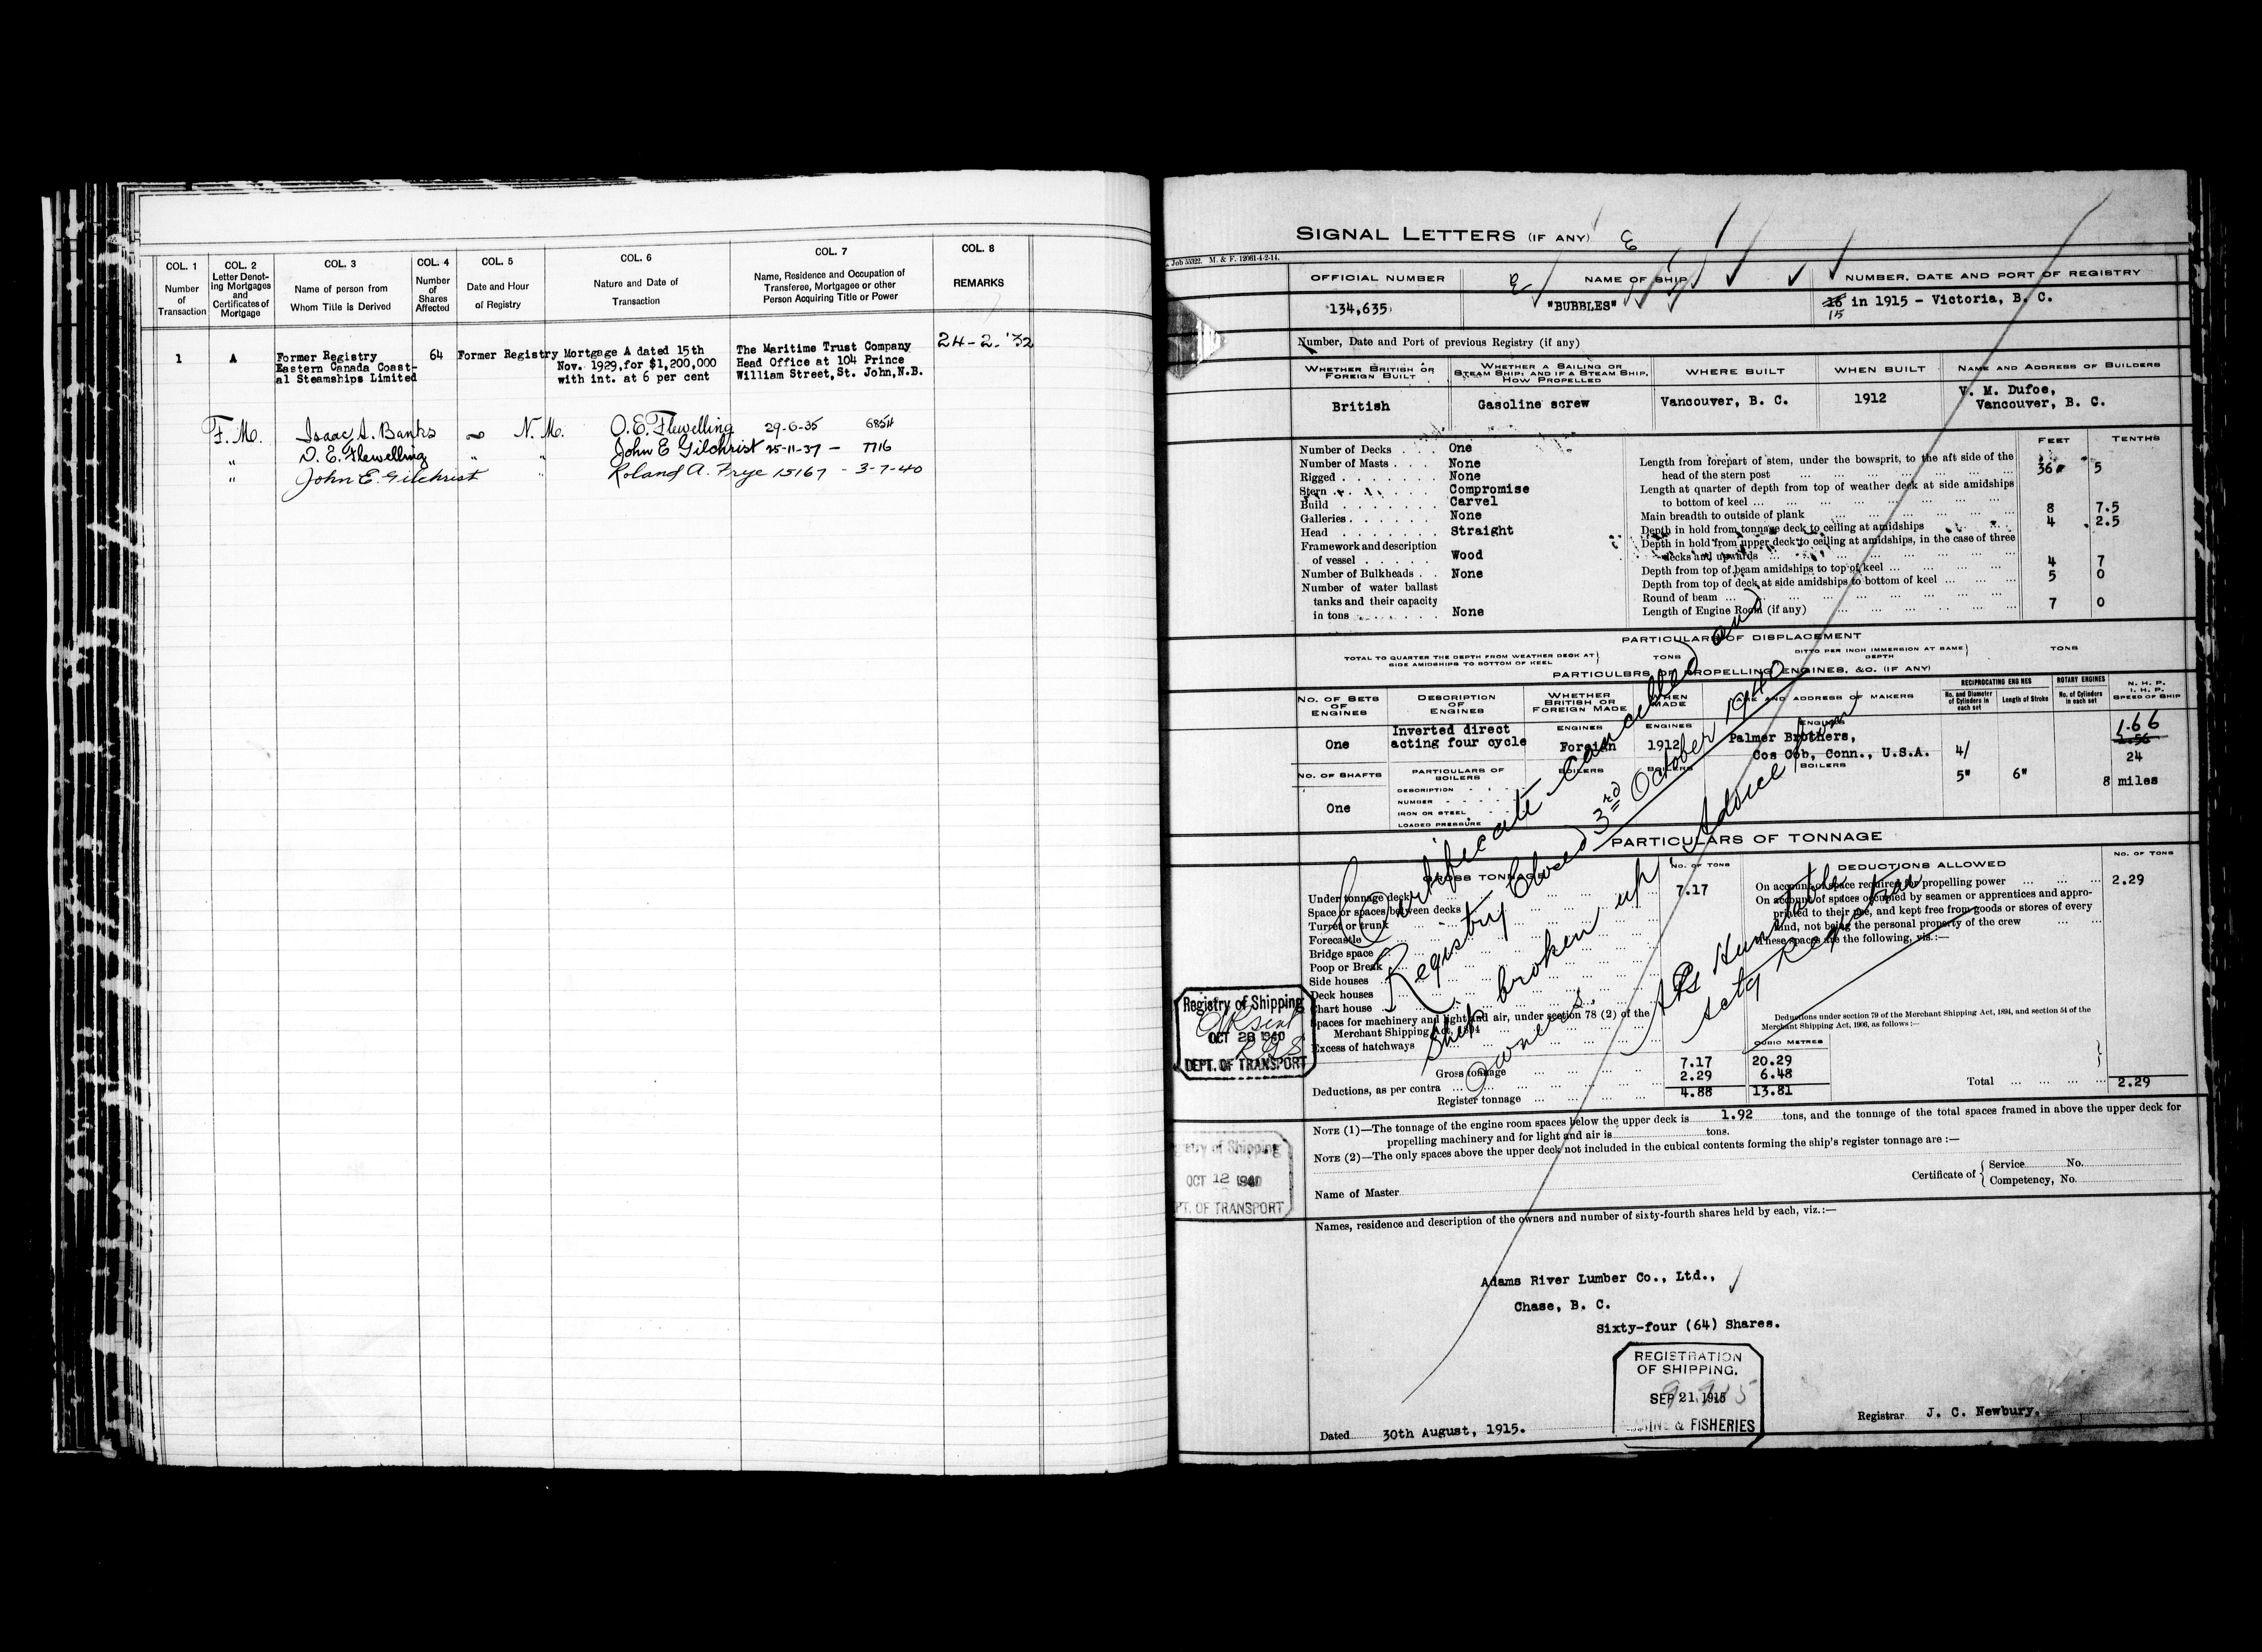 COL. 1
Number
of
Transaction
COL. 2
Letter Denot-
ing Mortgages
and
Certificates of
Mortgage
COL. 3
Name of person from
Whom Title is Derived
COL. 4
Number
of
Shares
Affected
COL. 5
Date and Hour
of Registry
COL. 6
Nature and Date of
Transaction
COL. 7
Name, Residence and Occupation of
Transferee, Mortgagee or other
Person Acquiring Title or Power
COL. 8
REMARKS
1 A Former Registry 64 Former Registry Mortgage A dated 15th The Maritime Trust Company 24-2-'32
Eastern Canada Coast- Nov. 1929, for $1,200,000 Head Office at 104 Prince
al Steamships Limited with int. at 6 per cent William Street, St. John, N.B.
F.M. Isaac A. Banks N.M. O.E. Flewelling 29-6-35 6854
" O.E. Flewelling " " John E Gilchrist 25-11-37 - 7716
" John E. Gilchrist " Roland A. Frye 15167 - 3-7-40
SIGNAL LETTERS (IF ANY)
Job 55322. M. & F. 12061-4-2-14.
OFFICIAL NUMBER NAME OF SHIP NUMBER, DATE AND PORT OF REGISTRY
134,635 "BUBBLES" 16 in 1915 - Victoria, B. C.
15
Number, Date and Port of previous Registry (if any)
WHETHER BRITISH OR
FOREIGN BUILT
WHETHER A SAILING OR
STEAM SHIP; AND IF A STEAM SHIP,
HOW PROPELLED
WHERE BUILT
WHEN BUILT
NAME AND ADDRESS OF BUILDERS
British Gasoline screw Vancouver, B. C. 1912 V. M. Dufoe,
Vancouver, B. C.
FEET TENTHS
Number of Decks One
Number of Masts None
Rigged None
Stern Compromise
Build Carvel
Galleries None
Head Straight
Framework and description
of vessel Wood
Number of Bulkheads None
Number of water ballast
tanks and their capacity
in tons None
Length from forepart of stem, under the bowsprit, to the aft side of the
head of the stern post 36 5
Length at quarter of depth from top of weather deck at side amidships
to bottom of keel
Main breadth to outside of plank 8 7.5
Depth in hold from tonnage deck to ceiling at amidships 4 2.5
Depth in hold from upper deck to ceiling at amidships, in the case of three
decks and upwards
Depth from top of beam amidships to top of keel 4 7
Depth from top of deck at side amidships to bottom of keel 5 0
Round of beam
Length of Engine Room (if any) 7 0
PARTICULARS OF DISPLACEMENT
TOTAL TO QUARTER THE DEPTH FROM WEATHER DECK AT
SIDE AMIDSHIPS TO BOTTOM OF KEEL
TONS
DITTO PER INCH IMMERSION AT SAME
DEPTH
TONS
PARTICULBRS OF PROPELLING ENGINES, &C. (IF ANY)
NO. OF SETS
OF
ENGINES
DESCRIPTION
OF
ENGINES
WHETHER
BRITISH OR
FOREIGN MADE
WHEN
MADE
NAME AND ADDRESS OF MAKERS
RECIPROCATING ENGINES
No. and Diameter
of Cylinders in
each set
Length of Stroke
ROTARY ENGINES
No. of Cylinders
in each set
N. H. P.
I. H. P.
SPEED OF SHIP
ENGINES ENGINES ENGINES
One Inverted direct
acting four cycle Foreign 1912 Palmer Brothers,
Cos Cob, Conn., U.S.A.
4/ 1.66
1.56
24
5" 6" 8 miles
NO. OF SHAFTS
One
PARTICULARS OF
BOILERS
BOILERS BOILERS BOILERS
DESCRIPTION
NUMBER
IRON OR STEEL
LOADED PRESSURE
PARTICULARS OF TONNAGE
GROSS TONNAGE NO. OF TONS
Under tonnage deck 7.17
Space or spaces between decks
Turret or trunk
Forecastle
Bridge space
Poop or Break
Side houses
Deck houses
Chart house
Spaces for machinery and light and air, under section 78 (2) of the
Merchant Shipping Act, 1894
Excess of hatchways
CUBIC METRES
Gross tonnage 7.17 20.29
Deductions, as per contra 2.29 6.48
Register tonnage 4.88 13.81
DEDUCTIONS ALLOWED NO. OF TONS
On account of space required for propelling power 2.29
On account of spaces occupied by seamen or apprentices and appro-
priated to their use, and kept free from goods or stores of every
kind, not being the personal property of the crew
These spaces are the following, viz.:—
Deductions under section 79 of the Merchant Shipping Act, 1894, and section 54 of the
Merchant Shipping Act, 1906, as follows:—
Total 2.29
Certificate cancelled and
Registry Closed 3rd October 1940
Ship broken up Advice from
Owners.
Huntable
Actg Registrar
Registry of Shipping
OCT 28 1940
DEPT. OF TRANSPORT
stry of Shipping
OCT 12 1940
PT. OF TRANSPORT
NOTE (1)—The tonnage of the engine room spaces below the upper deck is 1.92 tons, and the tonnage of the total spaces framed in above the upper deck for
propelling machinery and for light and air is tons.
NOTE (2)—The only spaces above the upper deck not included in the cubical contents forming the ship's register tonnage are :—
Name of Master
Certificate of { Service No.
Competency, No.
Names, residence and description of the owners and number of sixty-fourth shares held by each, viz.:—
Adams River Lumber Co., Ltd.,
Chase, B. C.
Sixty-four (64) Shares.
REGISTRATION
OF SHIPPING.
SEP 21, 1915
& FISHERIES
Dated 30th August, 1915.
Registrar J. C. Newbury.